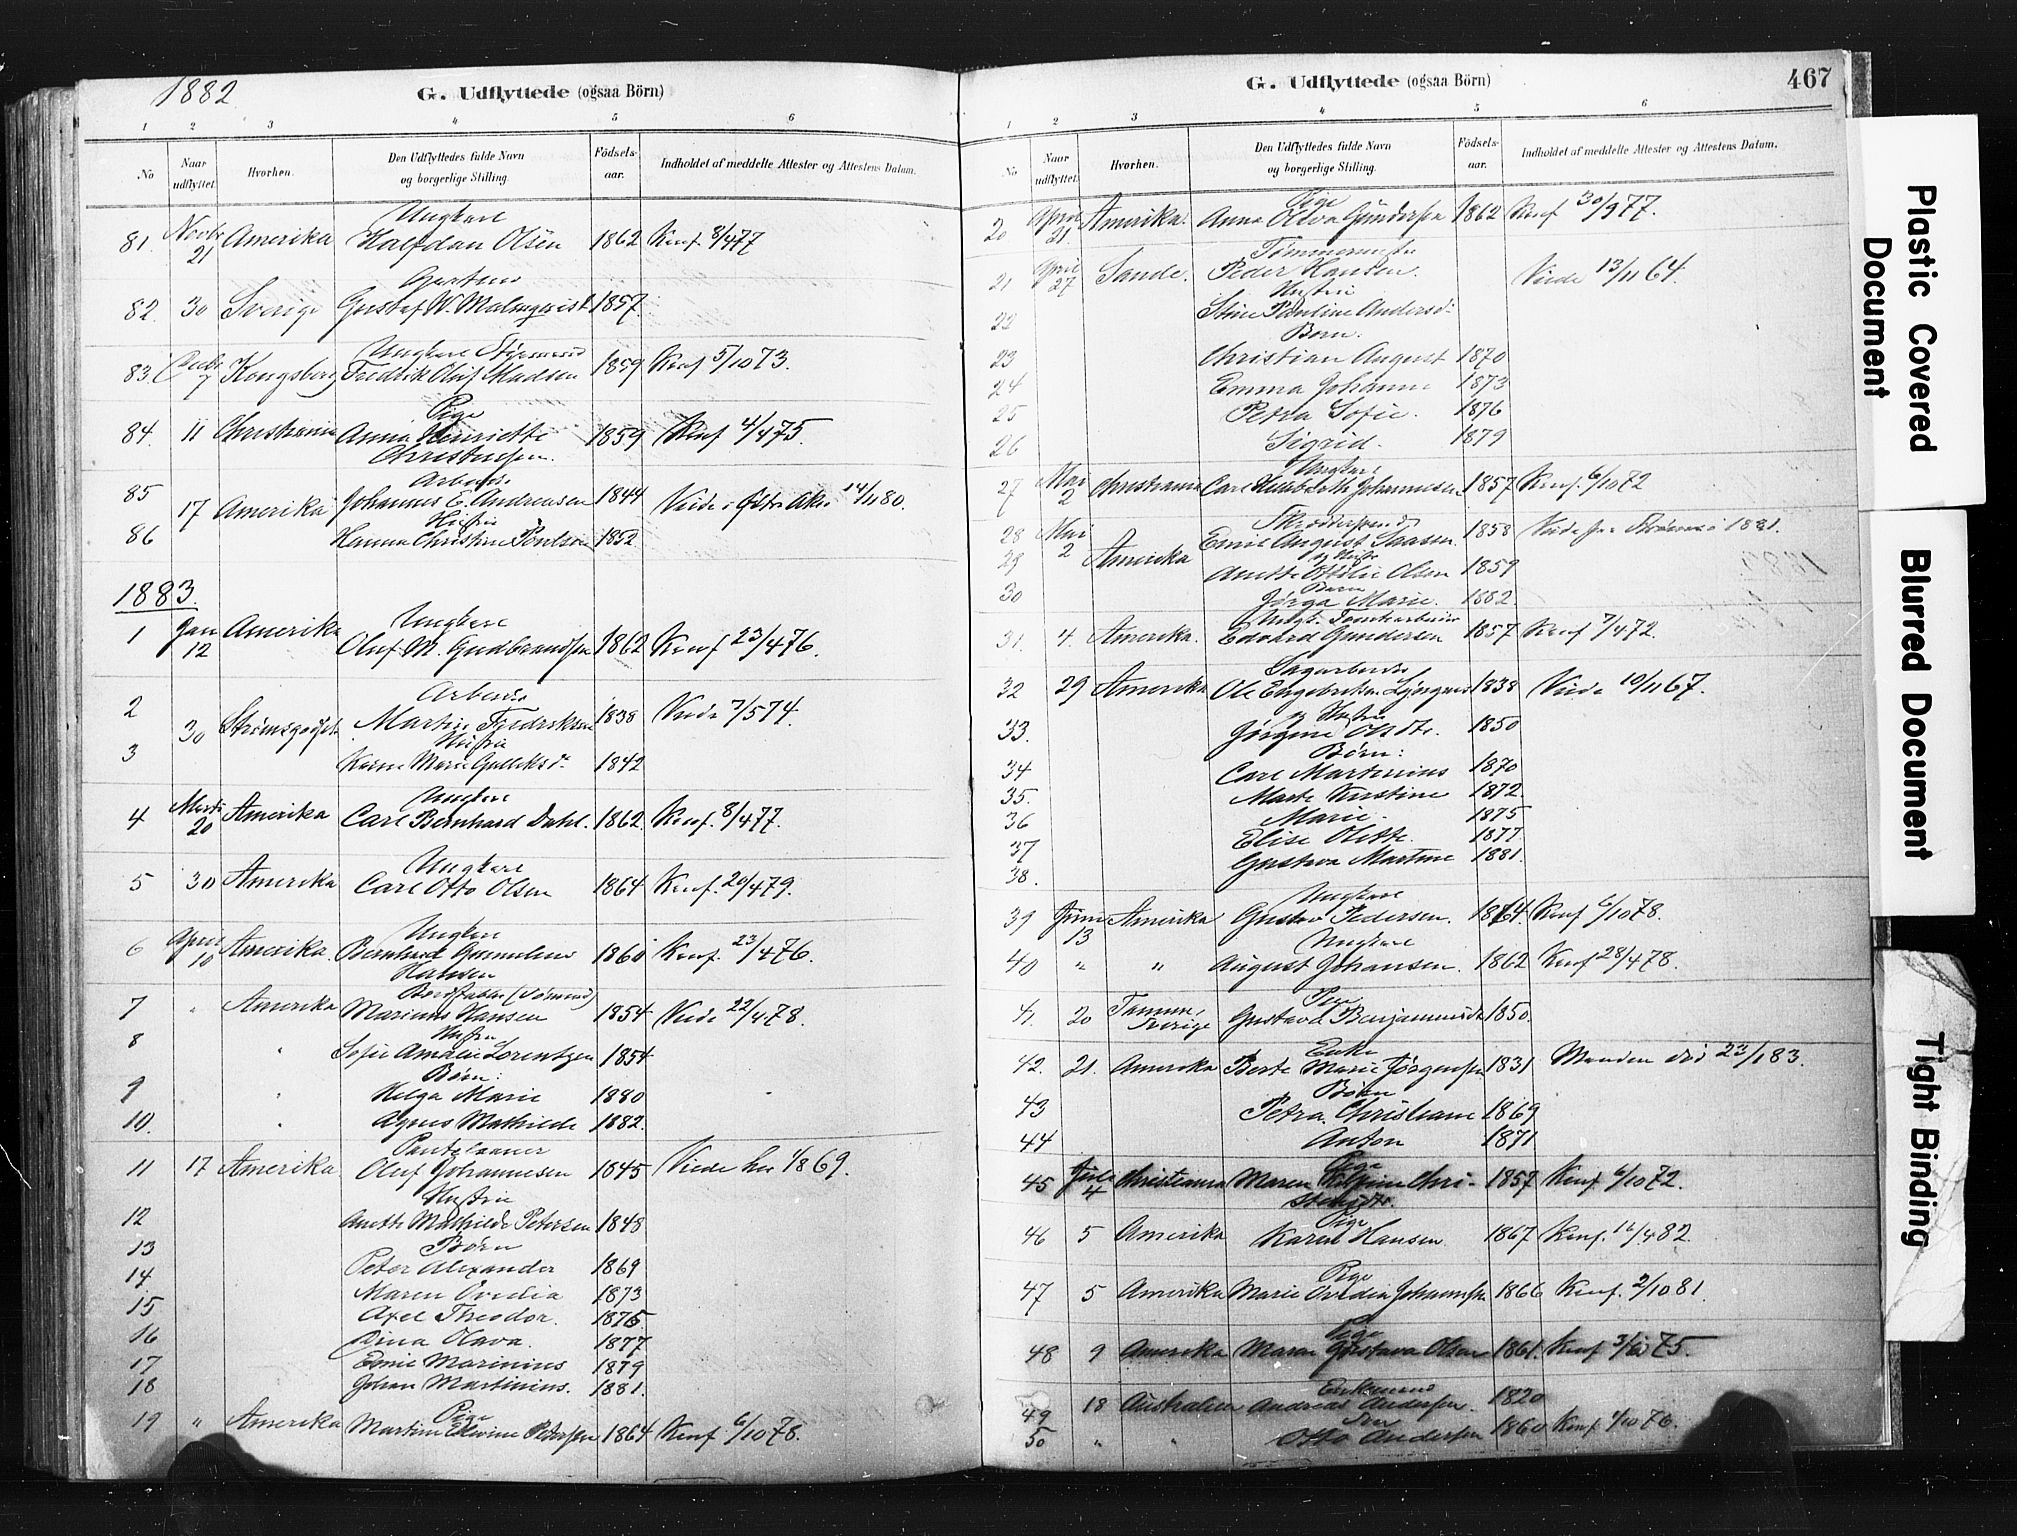 1882
G. Udflyttede (ogsaa Börn)
1 2 3 4 5 6
No
Naar udflyttet.
Hvorhen.
Den Udflyttedes fulde Navn og borgerlige Stilling.
Födsels-aar.
Indholdet af meddelte Attester og Attestens Datum.
Ungkarl
81. Novbr 21 Amerika Halfdan Olsen 1862 Konf. 8/4 77
82. 30 Sverige Gustaf W. Malmqvist 1857.
Ungkarl
83. 7 Kongsberg Fredrik Oluf Madsen 1859 Konf 5/10 73.
Pige
84. 11 Christiania Anna Henriette 1859 Konf 4/4 75.
Christensen.
Arbeider
85 17 Amerika Johannes E. Andreasen 1844 Viede i 14/11 80.
Hustru
86 Hanna Christine Poulsen 1852
1883.
Ungkarl
1 Jan 12 Amerika Oluf M. Gudbrandsen 1862 Konf 23/4 76.
Arbeider
2 30 Strømsgodset Martin Fredriksen 1838 Viede 7/5 74.
Hustru
3 Karen Marie Gulliksdr 1842
Ungkarl
4 Marts 20 Amerika Carl Bernhard Dahl. 1862 Konf. 8/4 77.
Ungkarl
5 30 Amerika Carl Otto Olsen 1864 Konf. 20/4 79.
Ungkarl
6 April 10 Amerika. Bernhard 1860 Konf. 23/4 76.
7 " Amerika Marius Hansen 1854 Viede 22/4 78.
Hustru
8 " Sofie Amalie Lorentzen 1854
Børn:
9 " Helga Marie 1880
10. Agnes Mathilde 1882.
11 17 Amerika. Oluf Johannesen 1845 Viede her 1/8 69.
Hustru
12 Anette Mathilde Petersen 1848
Børn
13 Peter Alexander 1869
14 Maren Ovidia 1873
15 Axel Theodor. 1875
16 Dina Olava. 1877
17 Emil Marinius 1879
18 Johan Martinius. 1881.
Pige
19 " Amerika Martine Edvine Pedersen 1864 Konf 6/10 78.
G. Udflyttede (ogsaa Börn)
467
1 2 3 4 5 6
No
Naar udflyttet.
Hvorhen.
Den Udflyttedes fulde Navn og borgerlige Stilling.
Födsels-aar.
Indholdet af meddelte Attester og Attestens Datum.
Pige
20 April 21 Amerika. Anna Olava Gundersen 1862 Konf 30/9 77.
Tømmermester
21 April 27 Sande. Peder Hansen. Viede 13/11 64.
Hustru
22 Stine Pauline Andersdr
Børn.
23 Christian August 1870
24 Emma Johanne 1873
25 Petra Sofie. 1876
26 Sigrid. 1879
Ungkarl
27 Mai 2 Christiania Carl Johannesen 1857 Konf. 6/10 72
28 Mai 2 Amerika Emil August Saasen 1858 Viede 1881.
og Hustru
29 Anette Ottilie Olsen 1859
Barn
30 Jørga Marie. 1882.
31. 4. Amerika. Edvard Gundersen 1857 Konf 7/4 72.
Sagarbeider
32 29 Amerika Ole Engebretsen 1838 Viede 10/11 67.
og Hustru
33. Jørgine Olsdtr. 1850
Børn:
34 Carl Martinius 1870
35. Marte Kirstine 1872.
36 Marie. 1875
37 Elise Olette. 1877
38. Gustava Martine 1881.
Ungkarl
39 Juni 13 Amerika Gustav Pedersen. 1864. Konf 6/10 78.
Ungkarl
40 " " August Johansen. 1862 Konf 28/4 78.
Pige
41. 20 Sverige Gustava 1850.
Enke
42. 21. Amerika Berte Marie Jørgensen 1831 Manden død 23/1 83.
Børn
43 Petra Christiane 1869
44 Anton 1871
Pige
45 Juli 4 Christiania Maren Chri- 1857 Konf. 6/10 72.
Pige
46 5 Amerika Karen Hansen 1867 Konf. 16/4 82.
Pige
47 5 Amerika Marie Ovidia Johannsen 1866 Konf. 2/10 81.
Pige
48 9 Amerika Maren Gustava Olsen 1861. Konf 3/10 75.
Enkemand
49 18 Australien Andreas Andersen. 1820
Søn
50 " " Otto Andersen 1860 Konf 1/10 76.
Plastic Covered Document
Blurred Document
Tight Binding